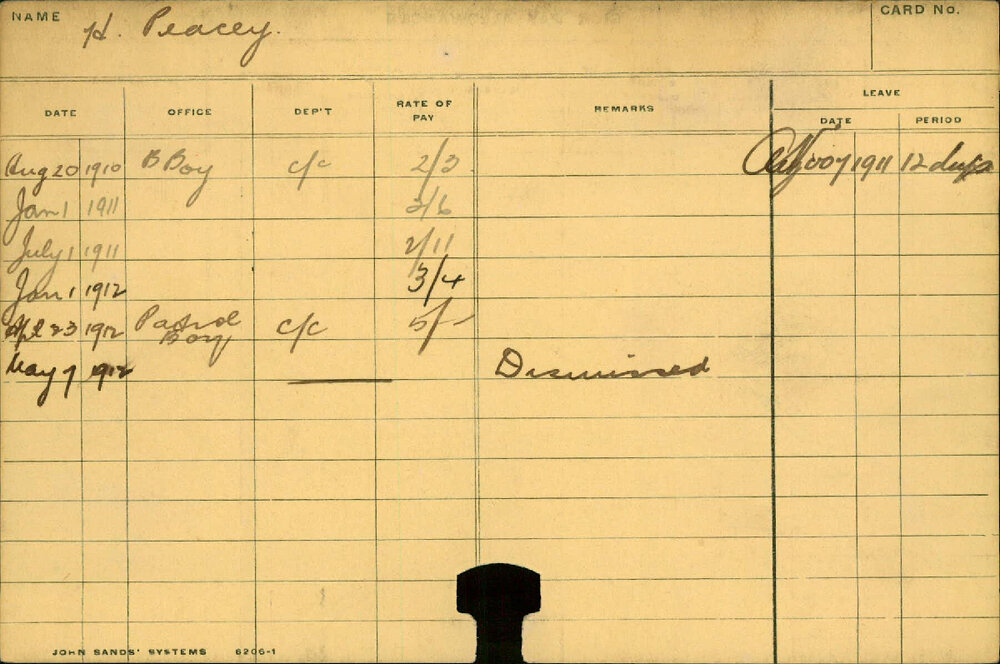 NAME H. Peacey. CARD No.
LEAVE
DATE OFFICE DEP'T RATE OF PAY REMARKS DATE PERIOD
Aug 20 1910 B Boy c/c 2/3 1911 12 days
Jan 1 1911 2/6
July 1 1911 2/11
Jan 1 1912 3/4
Apl 23 1912 Patrol Boy c/c 5/-
May 7 1912 Dismissed
JOHN SANDS' SYSTEMS 6206-1